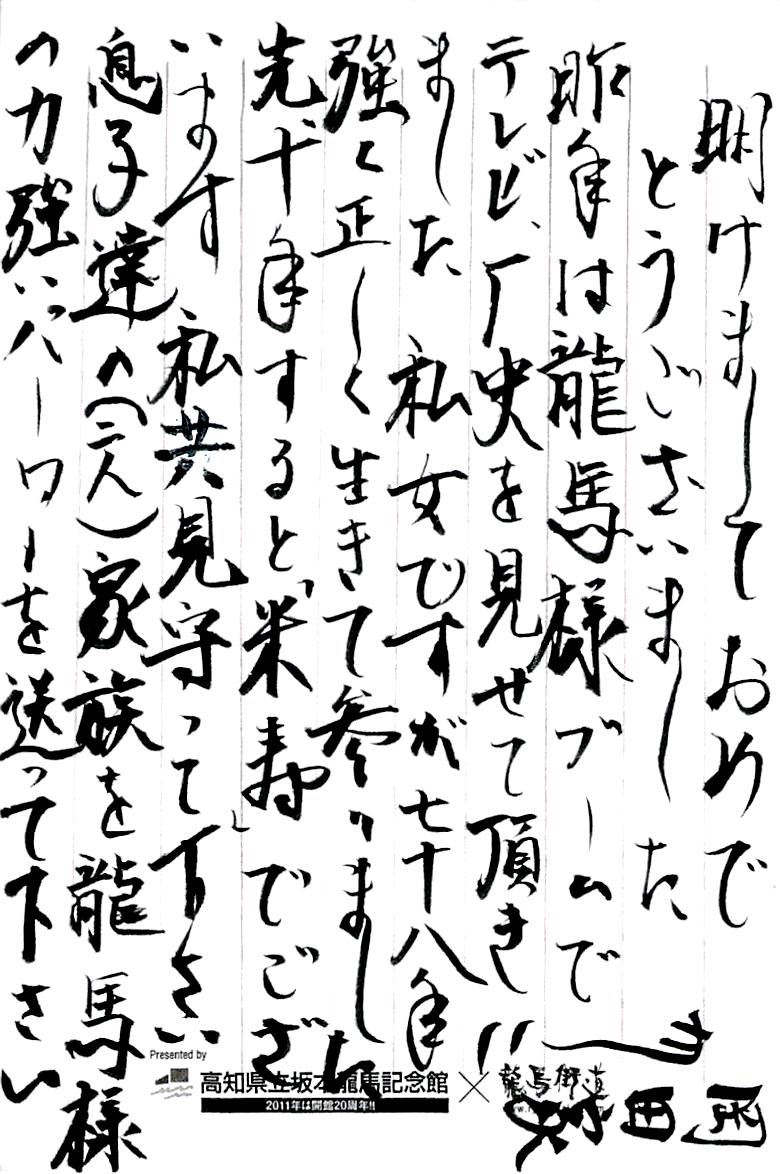 明けましておめで
とうございました
昨年は龍馬様ブームで
テレビ、厂史を見せて頂き
ました 私女ですが七十八年
強く正しく生きて参りました
先十年すると「米寿」でござ
います 私共見守って下さい
息子達の(二人)家族を龍馬様
の力強いパーワーを送って下さい
Presented by
高知県立坂本龍馬記念館 × 龍馬街道
2011年は開館20周年!!